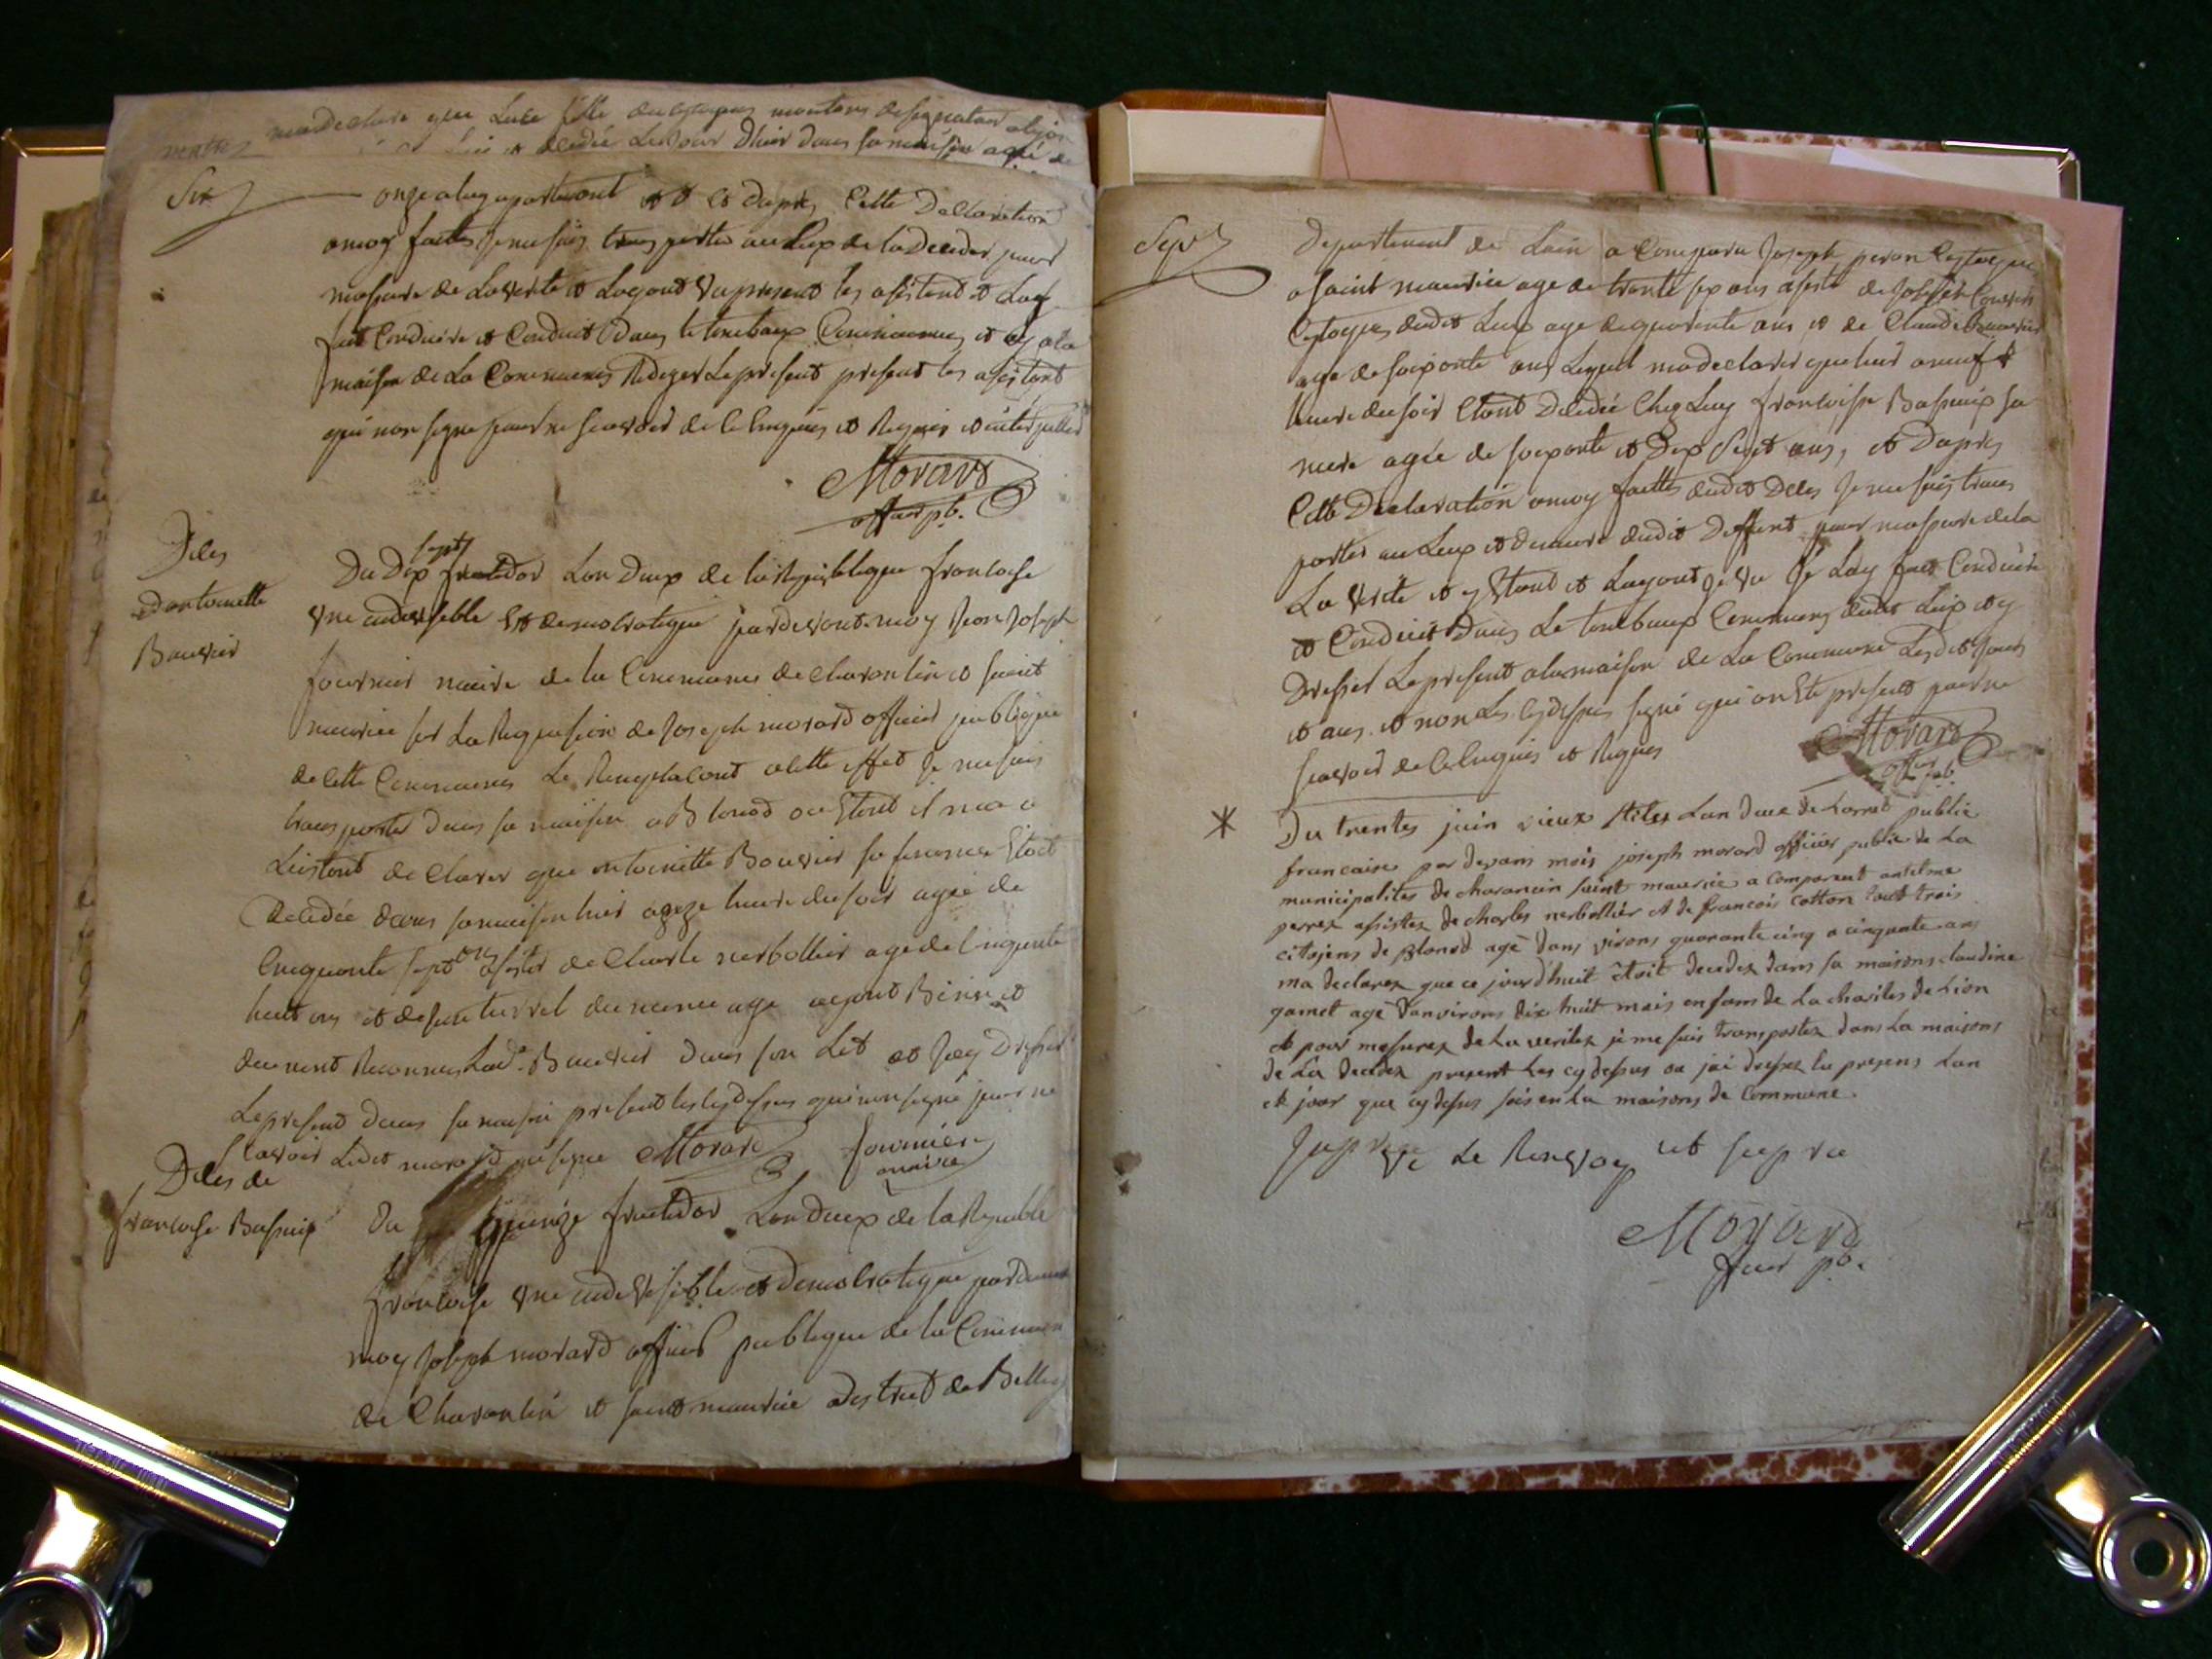 ma declaré que Luce fille
decédée Le jour Dhier dans sa maison agé de
Six
onze et Dapres Cette Declaration
a moy faittes je me suis transportés au Lieux de la Decedes pour
massure de La verité et Layant vu present les asistant et Lay
fait Conduire et Conduit dans le tombaux Communes et a la
maison de La Communes Rediger Le present present les asistant
qui non signe pour ne scavoir de Ce Enquis et Requis
Morard
officier pb.
Deles
Dantoinette
Bouvier
sept
Du Dix fructidor Lan Deux de la Republique francoise
une indivisible et democratique pardevant moy Jean Joseph
fournier maire de la Communes de Charancin et saint
maurice sur La Requisition de Joseph morard officier publique
de Cette Communes Le Remplacant a Cette effet Je me suis
transporter Dans sa maison a Blanod ou Etant il ma a
Linstant declarer que antoinette Bouvier sa femme Etoit
decedée dans sa maison hier a onze heure du soir agée de
Cinquante sept ans asister de Charle nerbollier age de Cinquante
huit ans et de
duement Reconnus Lad. Bouvier Dans son Lit et Jay Dresser
Le present Dans sa maison present les Cydessus qui non signe pour ne
scavoir Ledit morard a signe Morard fournier
maire
Deles de
francoise Bassuix
Du quinze fructidor Lan Deux de la Republe
francoise une indivisible et democratique pardevant
moy Joseph morard officier publique de la Commune
de Charancin et saint maurice District de Belley
Sept
Departement de Lain a Comparu Joseph peron Citoyen
a saint maurice age de trante six ans asisté de Joseph
Citoyen dudit Lieux age de quarante ans et de Claude Bouvier
age de soixante ans Lequel ma declarer que hier a neuf
heure du soir Etant Decedée Chez Luy francoise Bassuix sa
mere agée de soixante et Dix Sept ans, et Dapres
Cette Declaration a moy faittes dudit Deles Je me suis trans
portés au Lieux et demeure dudit Deffunt pour massure de la
La Verité et y Etant et Layant vu Je Lay fait Conduire
et Conduit Dans Le tombaux Communes dudit Lieux et y
Dresser Le present a la maison de La Commune Lesdit jours
et ans et non Les Cydessus signé qui on Eté present pour ne
scavoir de Ce Enquis et Requis
Morard
offier pub.
* Du trentes juin vieux stiles Lan deux de La republi
francaise par devans mois joseph morard officier public de La
municipalites de charancin saint maurice a comparut antelme
perrex assistez de charles nerbollier et de francois cotton tout trois
citojens de Blanod agé Dans virons quarante cinq a cinquante ans
ma declarez que ce jourdhuit étoit decedez dans sa maisons claudine
gamet agé Danvirons dix huit mois enfans de La charites de Lion
et pour massurez de La veritez je me suis transportez dans La maisons
de La decedez present Les cy dessus ou jai dressez la presens Lan
et jour que cy dessus fais en La maisons de Commune
Jappruve Le Renvoy ut supra
Morard
ffier pb.